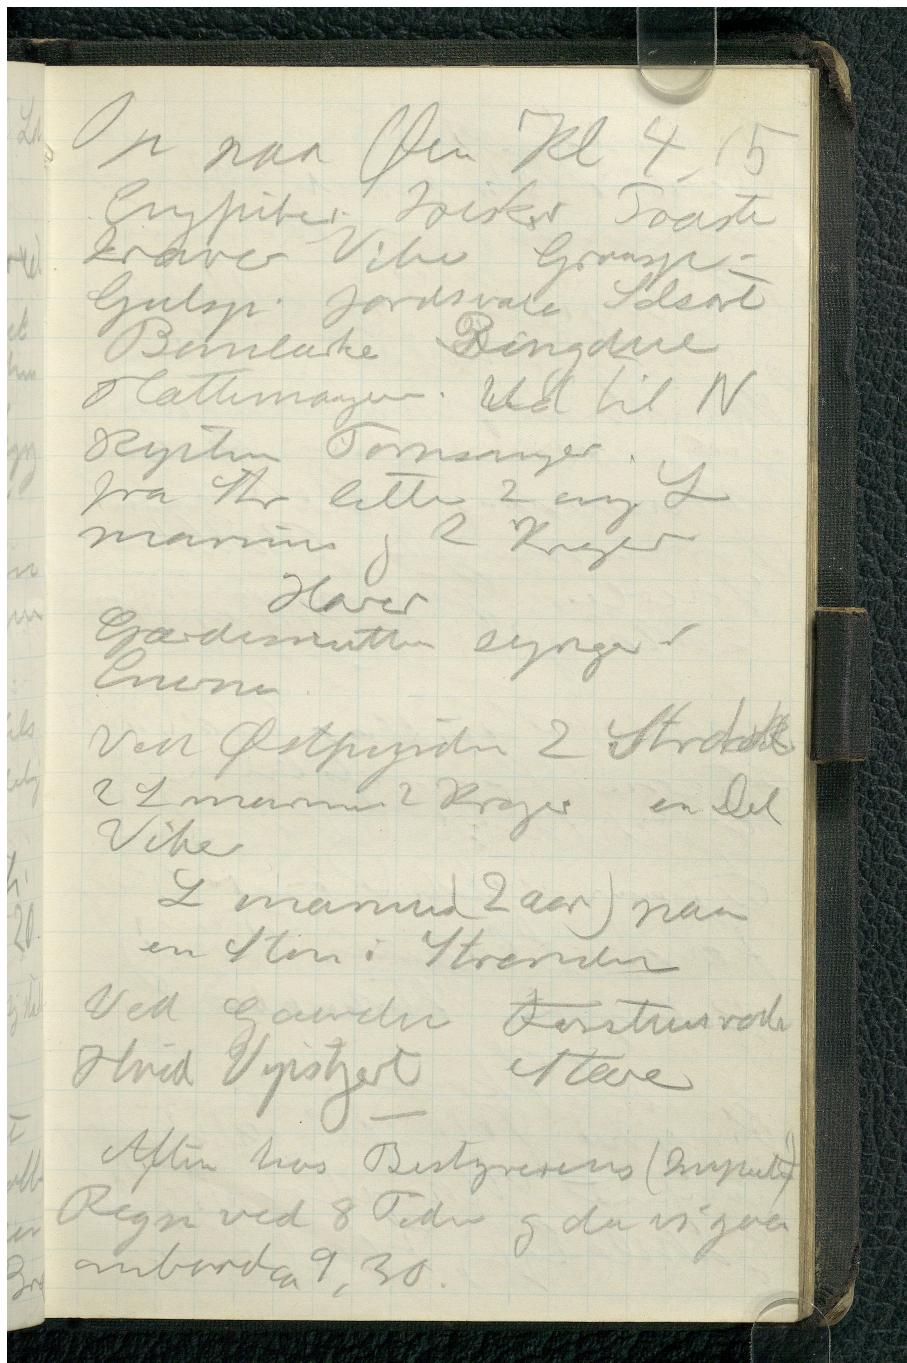 Op paa Øen Kl 4,15
Engpiber. Irisker Toaste
Kraver Vibe Graasp.
Gulsp. Jordsvale Solsort
Bomlærke Ringdue
Hættemaage. Ud til N
Kysten Tornsanger.
fra Str letter 2 ung L
marinus g 2 Krager
Harer
Gærdesmutten synger i
Enerne.
Ved Østspidsen 2
2 L marinus 2 Krager en Del
Vibe
L marinus (2 aar) paa
en Sten i Stranden
Ved Gaarden Forstuesvale
Hvid Vipstjert Stære
Aften hos Bestyrerens
Regn ved 8 Tiden g da vi gaar
ombord ca 9,30.